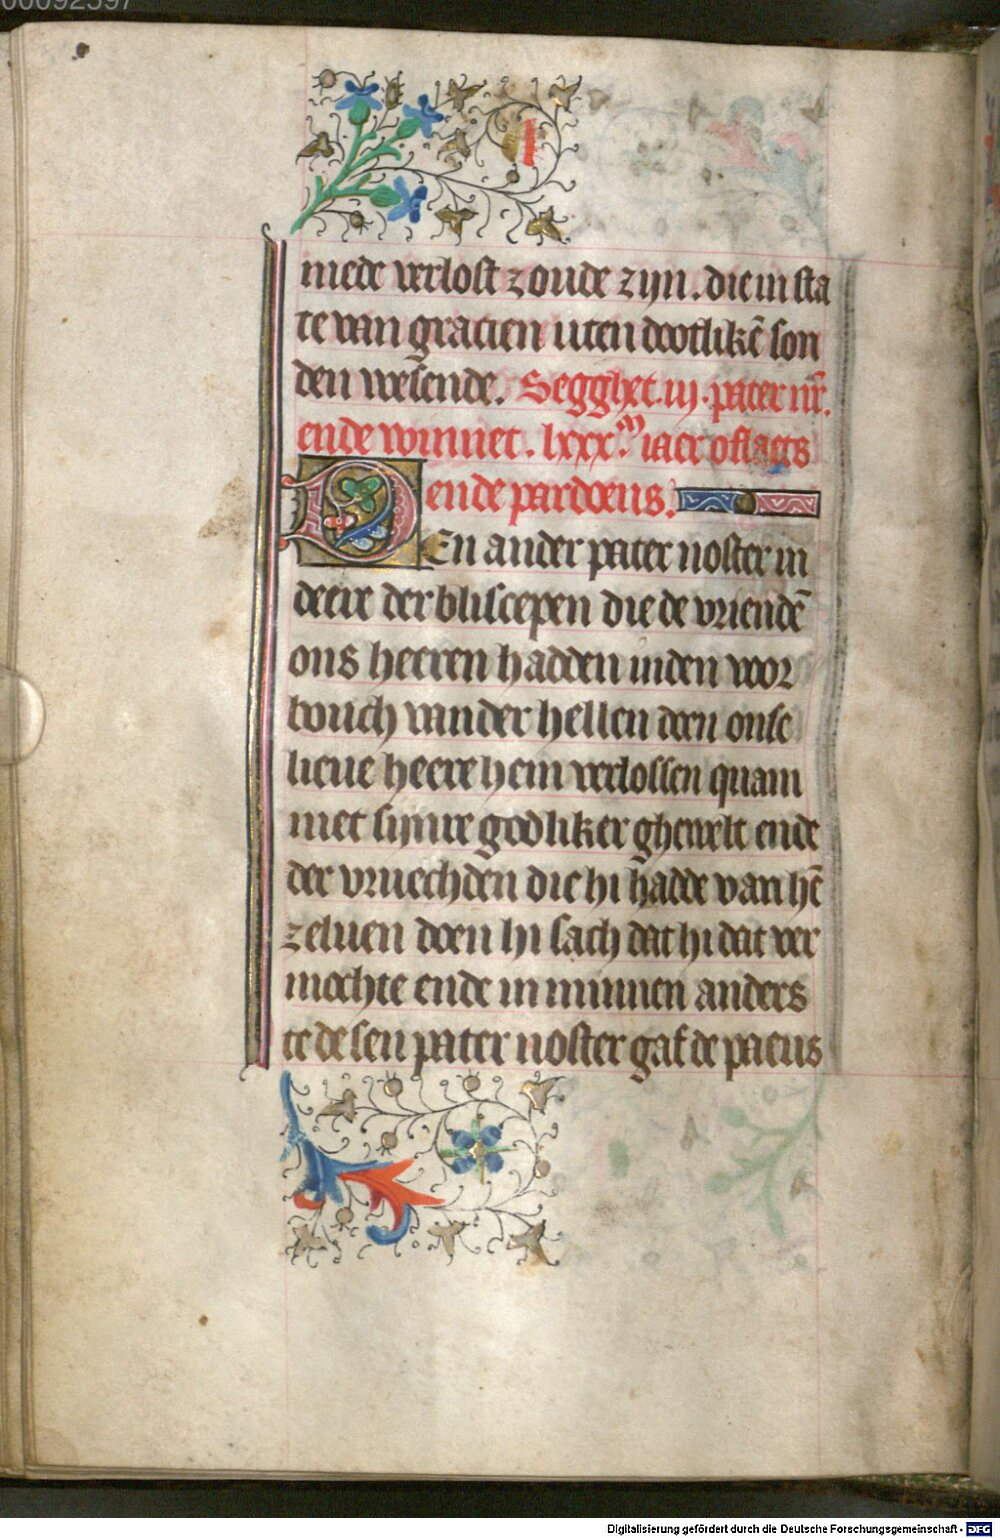 00092397
mede verlost zoude zijn. die in sta
te van gracien uten dootlikē son
den wesende. Segghet .iij. pater nr̄.
ende winnet. lxxx.ᵐ iaer oflaets
ende pardoens.
Een ander pater noster in
deere der bliscepen die de vriendē
ons heeren hadden inden voor
bouch vander hellen doen onse
lieue heere hem verlossen quam
met sijnre godliker ghewelt ende
der vruechden die hi hadde van hē
zeluen doen hi sach dat hi dat ver
mochte ende in minnen anders
te desen pater noster gaf de paeus
Digitalisierung gefördert durch die Deutsche Forschungsgemeinschaft - DFG